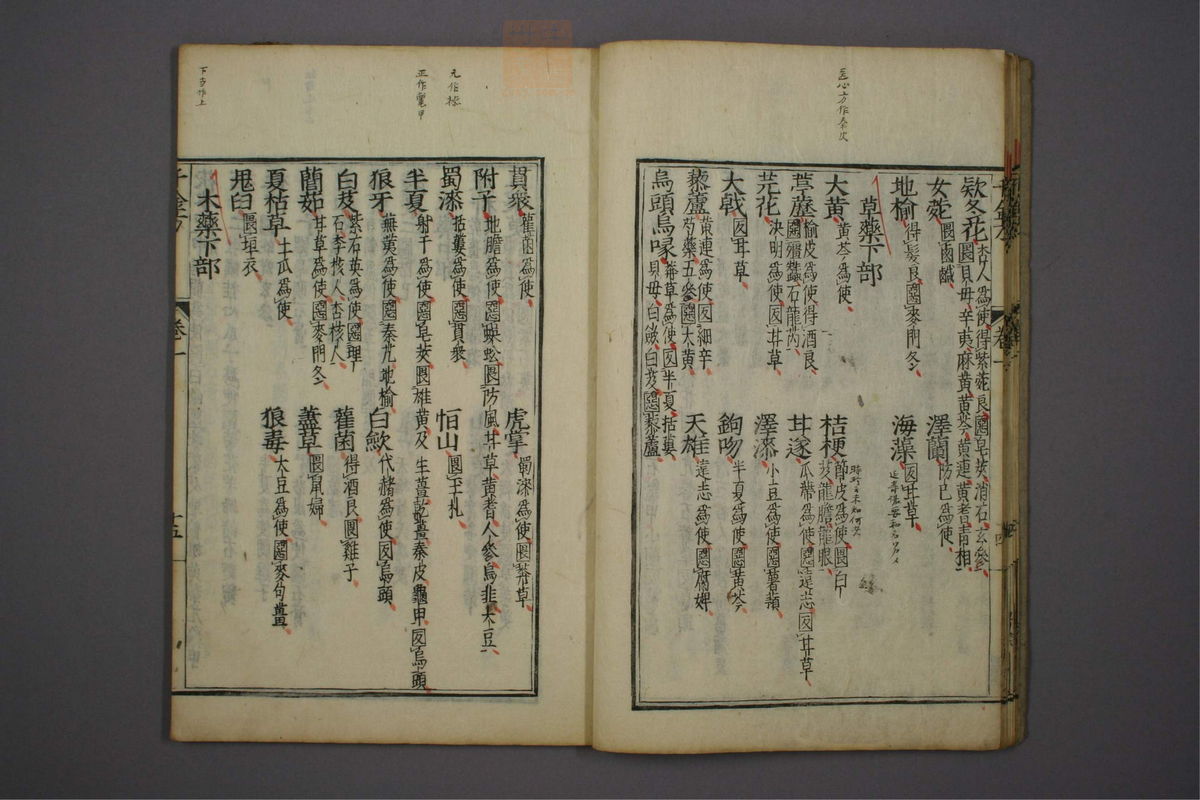 医心方作秦皮
欵冬花 杏人爲使得紫菀良惡皂莢消石玄參畏貝母辛夷麻黄黄芩黄連黄耆青葙
女菀 畏鹵鹹
澤蘭 防已爲使
地榆 得髮良惡麥門冬
海藻 反甘草
草藥下部
大黄 黄芩爲使
桔梗 節皮爲使畏白芨龍膽龍眼
葶藶 榆皮爲使得酒良惡殭蠶石龍芮
甘遂 瓜帶爲使惡遠志反甘草
芫花 決明爲使反甘草
澤漆 小豆爲使惡薯蕷
大戟 反甘草
鉤吻 半夏爲使惡黄芩
藜蘆 黄連爲使反細辛芍藥五參惡大黄
天雄 遠志爲使惡腐婢
烏頭烏喙 莽草爲使反半夏栝蔞貝母白斂白芨惡藜蘆
千金方
卷一
十四
元作椽
正作鼈甲
下当作上
貫衆 雚菌爲使
虎掌 蜀漆爲使畏莽草
附子 地膽爲使惡蜈蚣畏防風甘草黄耆人參烏韭大豆
蜀漆 栝蔞爲使惡貫衆
恒山 畏玉札
半夏 射干爲使惡皂莢畏雄黄及生薑乾薑秦皮龜甲反烏頭
狼牙 蕪荑爲使惡秦艽地榆
白斂 代赭爲使反烏頭
白芨 紫石英爲使惡理石李核人杏核人
雚菌 得酒良畏雞子
藺茹 甘草爲使惡麥門冬
藎草 畏鼠婦
夏枯草 土瓜爲使
狼毒 大豆爲使惡麥句薑
鬼臼 畏垣衣
木藥下部
千金方
卷一
十五